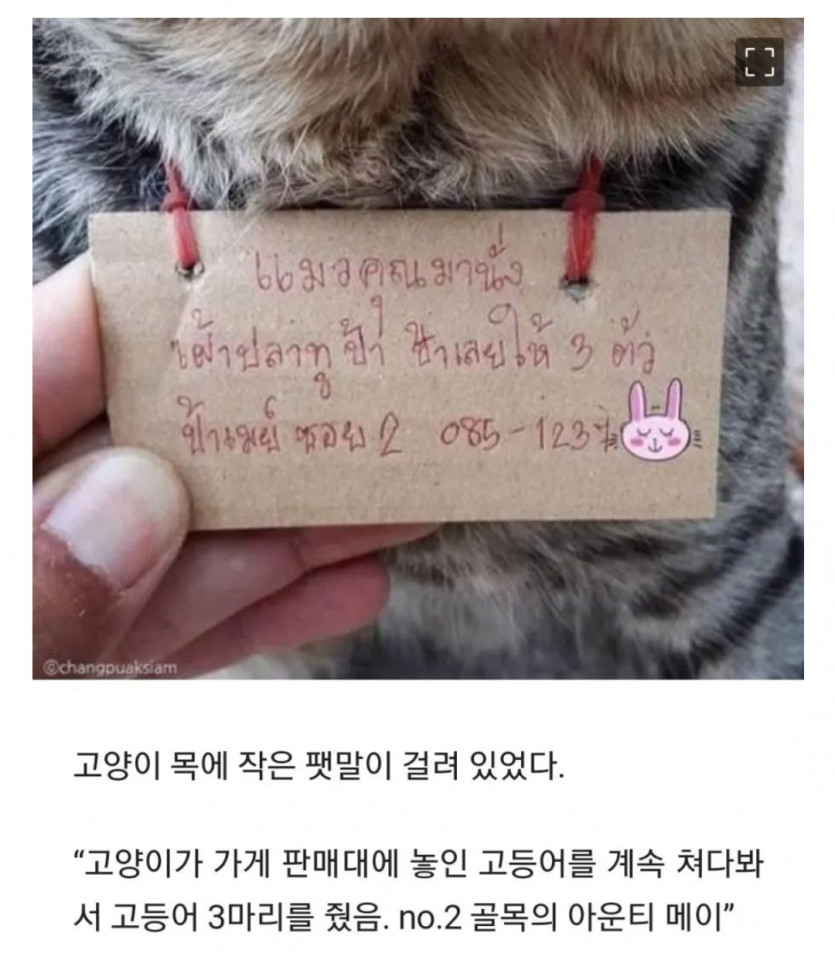 แมวคุณมานั่ง
เฝ้าปลาทูป้า ป้าเลยให้ 3 ตัว
ป้าเมย์ ซอย 2 085-123
©changpuaksiam
고양이 목에 작은 팻말이 걸려 있었다.
“고양이가 가게 판매대에 놓인 고등어를 계속 쳐다봐
서 고등어 3마리를 줬음. no.2 골목의 아운티 메이”